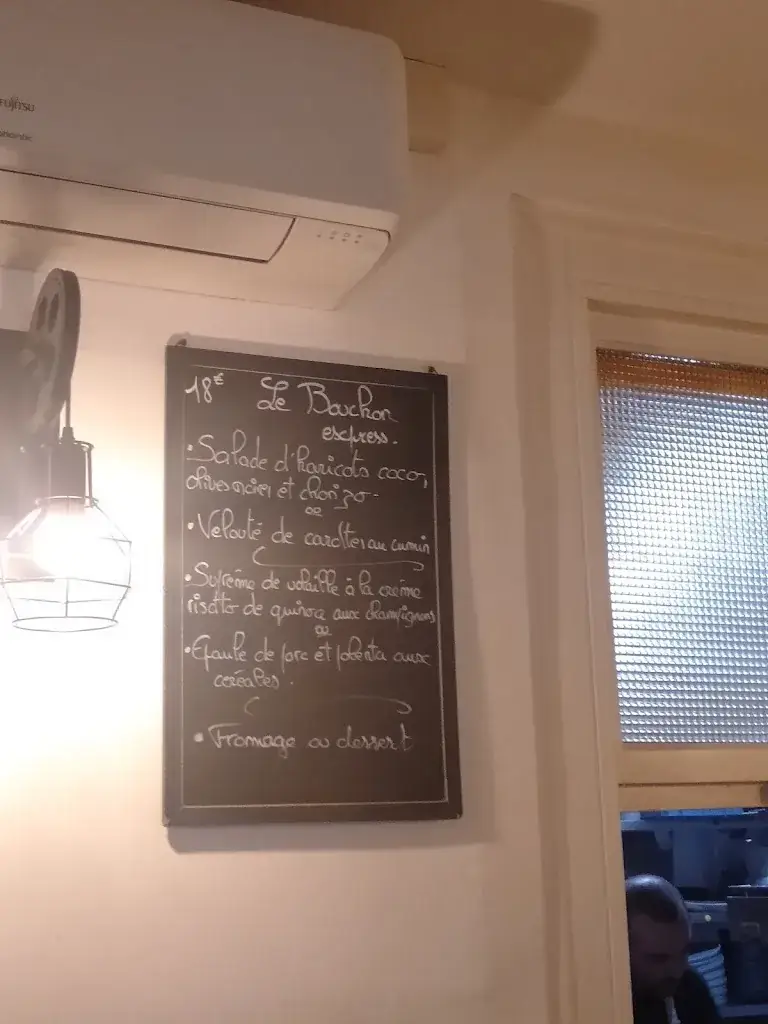 FUJITSU
18€ Le Bouchon
express.
• Salade d'haricots cocos,
olives noires et chorizo -
ou
• Velouté de carottes au cumin
• Suprême de volaille à la crème
risotto de quinoa aux champignons
ou
• Epaule de porc et polenta aux
céréales.
• Fromage ou dessert